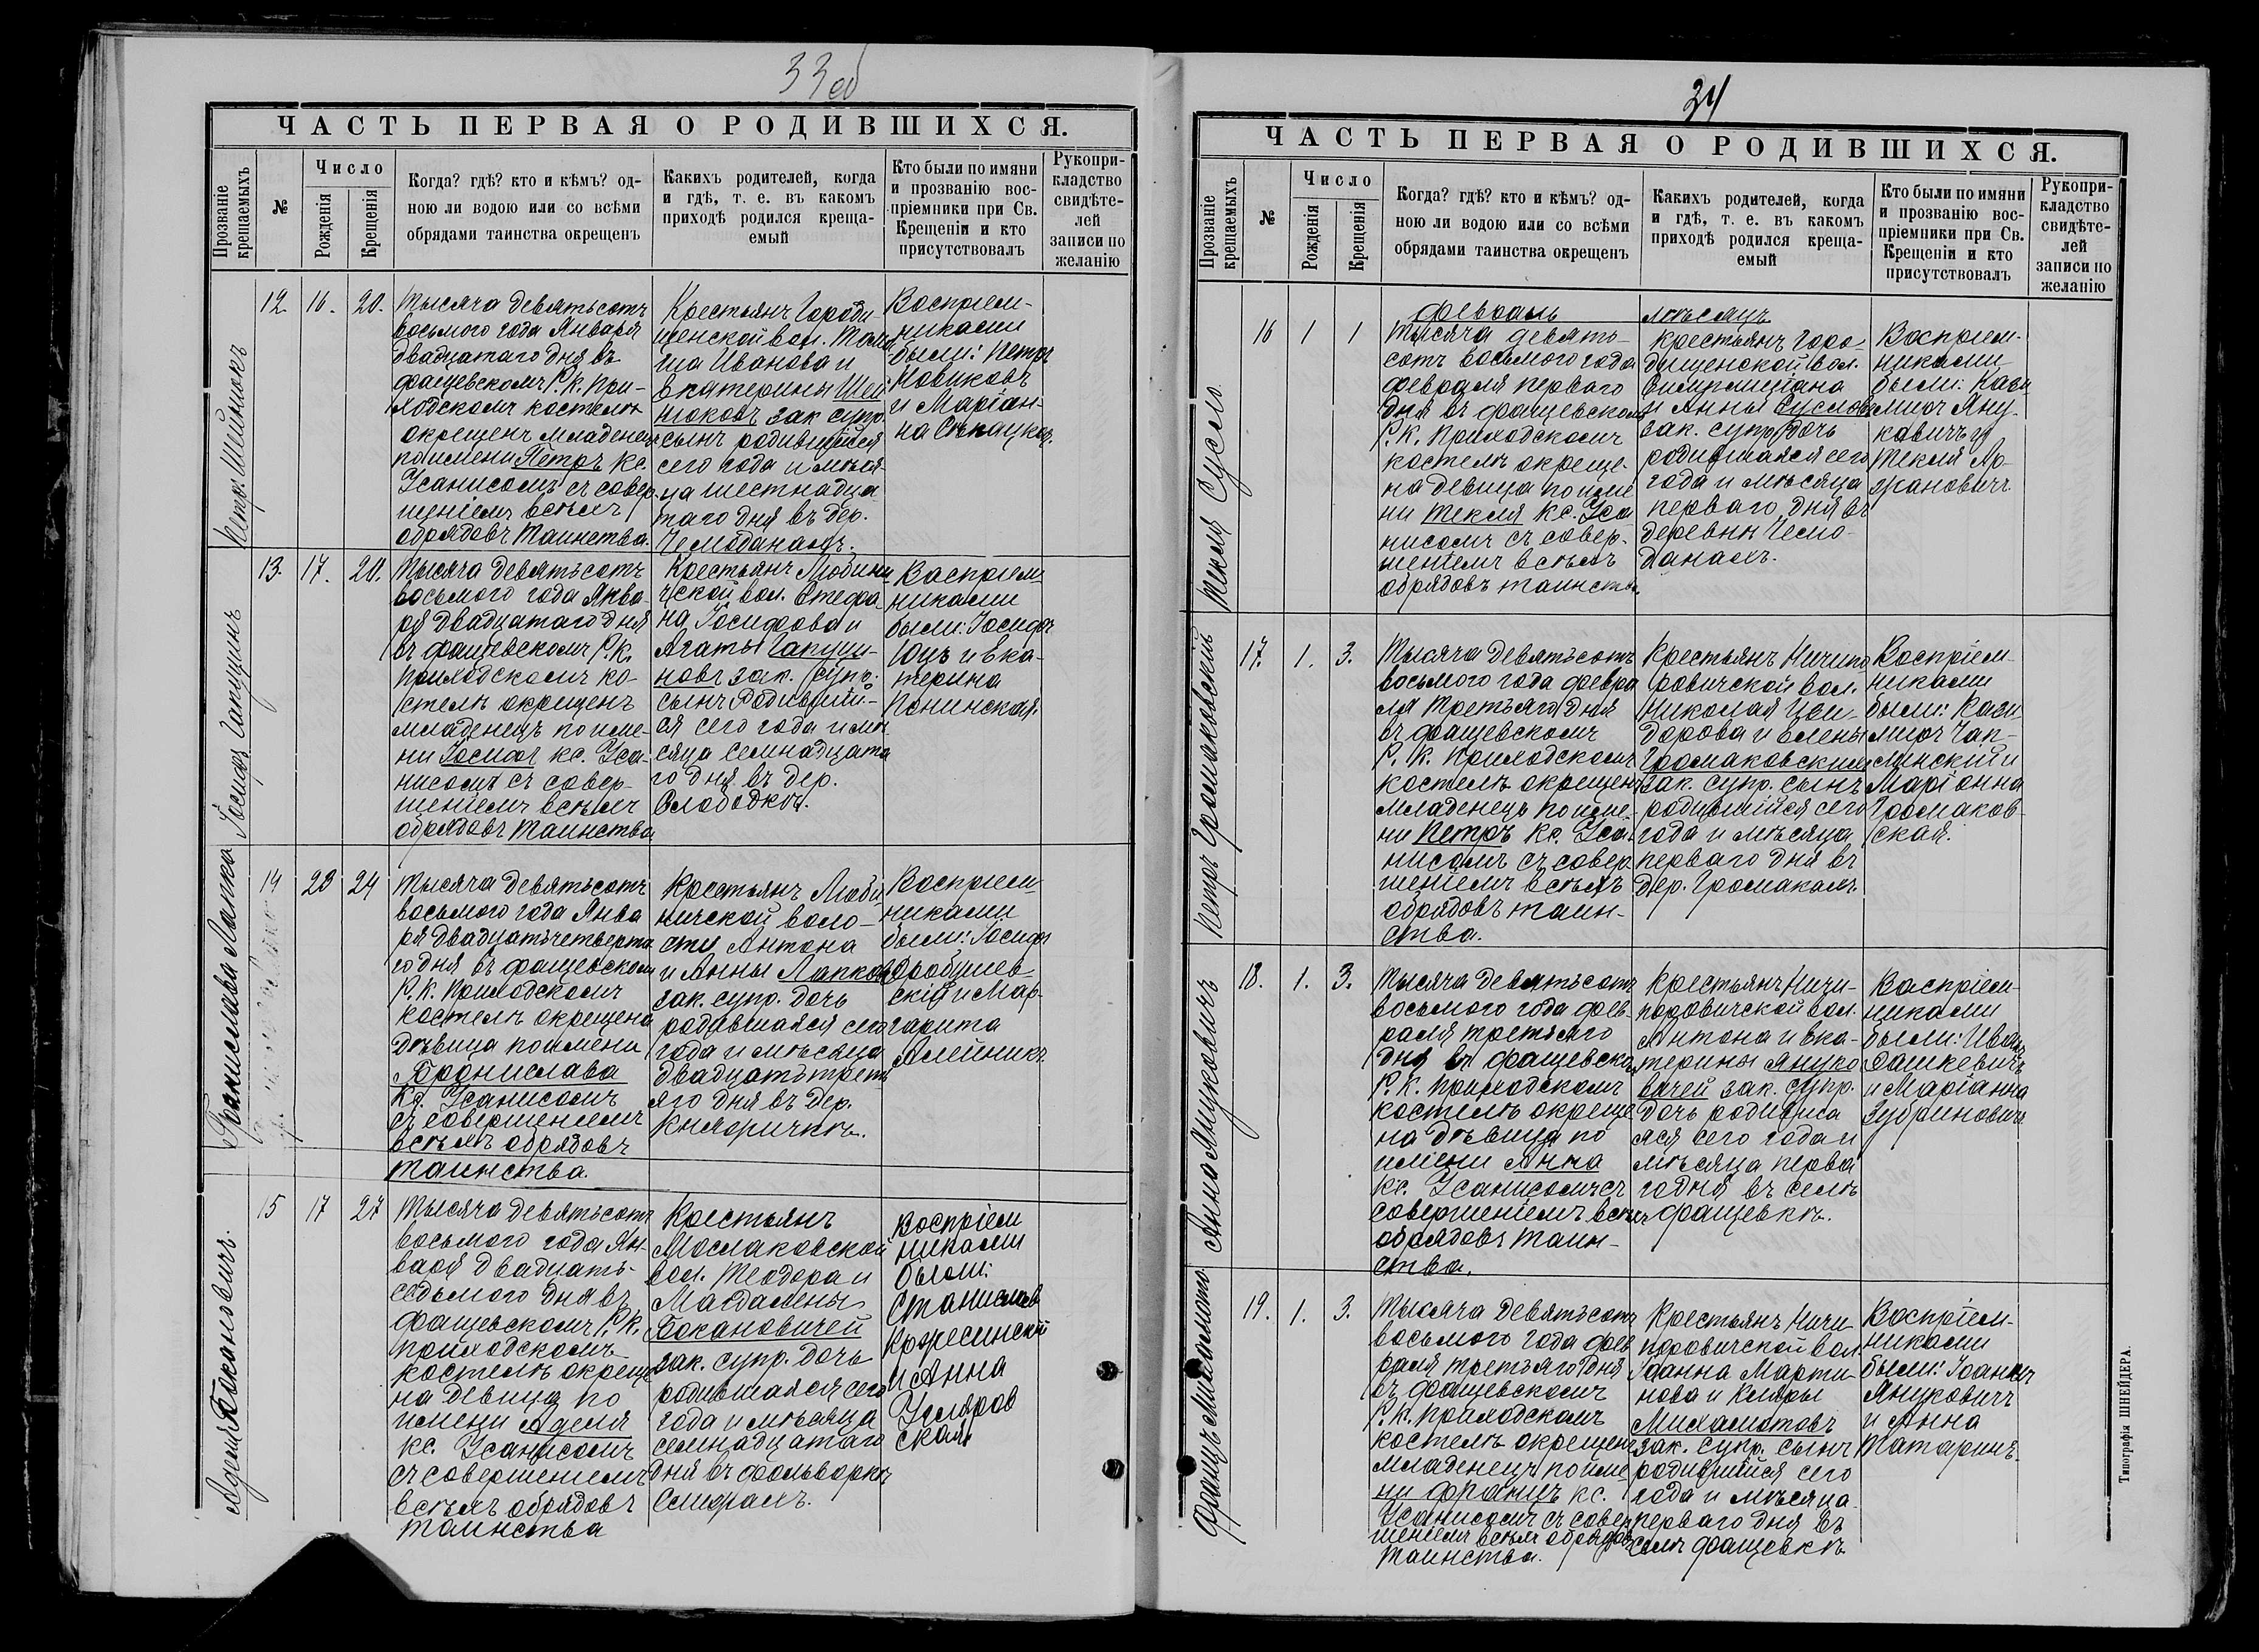 33об
ЧАСТЬ ПЕРВАЯ О РОДИВШИХСЯ.
Прозваніе крещаемыхъ
№
Число
Рожденія
Крещенія
Когда? гдѣ? кто и кѣмъ? од-
ною ли водою или со всѣми
обрядами таинства окрещенъ
Какихъ родителей, когда
и гдѣ, т. е. въ какомъ
приходѣ родился креща-
емый
Кто были по имяни
и прозванію вос-
пріемники при Св.
Крещеніи и кто
присутствовалъ
Рукопри-
кладство
свидѣте-
лей
записи по
желанію
Петръ Шейнюкъ
12.
16.
20.
Тысяча девятьсотъ
восьмого года Января
двадцатаго дня въ
фащевскомъ Р. К. При-
ходскомъ костелѣ
окрещенъ младенецъ
по имени Петръ кс.
Усанисомъ съ совер-
шеніемъ всѣхъ
обрядовъ Таинства.
Крестьянъ Городи-
щенской вол.
Иванова и
Екатерины Шей
нюковъ зак. супр.
сынъ родившійся
сего года и мѣся-
ца шестнадца
таго дня въ дер.
Чемоданахъ.
Воспріем-
никами
были: Петръ
Новиковъ
и Маріан-
на
13.
17.
20.
Іосифъ Гапушнъ
Тысяча девятьсотъ
восьмого года Янва-
ря двадцатаго дня
въ фащевскомъ Р. К.
приходскомъ ко-
стелѣ окрещенъ
младенецъ по име-
ни Іосифъ кс. Уса-
нисомъ съ совер-
шеніемъ всѣхъ
обрядовъ таинства
Крестьянъ Любини
чской вол. Стефа-
на Іосифова и
Агаты
новъ зак. супр.
сынъ родившій-
ся сего года и мѣ
сяца семнадцата
го дня въ дер.
Слободкѣ.
Воспріем
никами
были: Іосифъ
Юцъ и Ека-
терина
Понинская.
Бронислава Лапка
14
23
24
Тысяча девятьсотъ
восьмого года Янва
ря двадцатьчетверта
го дня въ фащевскомъ
Р. К. Приходскомъ
костелѣ окрещена
дѣвица по имени
Бронислава
кс. Усанисомъ
съ совершеніемъ
всѣхъ обрядовъ
таинства.
Крестьянъ Люби
ничской воло-
сти Антона
и Анны Лапковъ
зак. супр. дочь
родившаяся сего
года и мѣсяца
двадцать треть
яго дня въ дер.
Княжичкѣ.
Воспріем
никами
были: Іосифъ
Дробушев
скій и Мар-
гарита
Алейникъ
Аделя Бокановичъ.
15
17
27
Тысяча девятьсотъ
восьмого года Ян-
варя двадцать-
седьмого дня въ
фащевскомъ Р. К.
приходскомъ
костелѣ окреще
на девица по
имени Аделя
кс. Усанисомъ
съ совершеніемъ
всѣхъ обрядовъ
таинства
Крестьянъ
Мослаковской
вол. Теодора и
Магдалены
Бокановичей
зак. супр. дочь
родившаяся сего
года и мѣсяца
семнадцатаго
дня въ фольваркѣ
Воспріем
никами
были:
Станислав
и Анна
Усляров
ская
34
ЧАСТЬ ПЕРВАЯ О РОДИВШИХСЯ.
Прозваніе крещаемыхъ
№
Число
Рожденія
Крещенія
Когда? гдѣ? кто и кѣмъ? од-
ною ли водою или со всѣми
обрядами таинства окрещенъ
Какихъ родителей, когда
и гдѣ, т. е. въ какомъ
приходѣ родился креща-
емый
Кто были по имяни
и прозванію вос-
пріемники при Св.
Крещеніи и кто
присутствовалъ
Рукопри-
кладство
свидѣте-
лей
записи по
желанію
Февраль мѣсяцъ
Текля Сусло.
16
1
1
Тысяча девять-
сотъ восьмого года
февраля перваго
дня въ фащевскомъ
Р. К. Приходскомъ
костелѣ окреще-
на девица по име
ни Текля кс. Уса
нисомъ съ совер-
шеніемъ всѣхъ
обрядовъ таинства.
крестьянъ Горо-
дищенской вол.
и Анны Суслова
зак. супр. дочь
родившаяся сего
года и мѣсяца
перваго дня въ
деревнѣ Чемо-
данахъ.
Воспріем-
никами
были: Кази
миръ Яну-
кавичъ и
Текля Ар-
жановичъ.
Петръ Громаковскій
17.
1.
3.
Тысяча девятьсотъ
восьмого года февра
ля третьяго дня
въ фащевскомъ
Р. К. приходскомъ
костелѣ окрещенъ
младенецъ по име-
ни Петръ кс. Уса-
нисомъ съ совер-
шеніемъ всѣхъ
обрядовъ таин-
ства.
Крестьянъ Ничипо
ровичской вол.
Николая Иси-
дорова и Елены
Громаковскихъ
зак. супр. сынъ
родившійся сего
года и мѣсяца
перваго дня въ
дер. Громакахъ.
Воспріем-
никами
были: Кази
миръ Чап-
линскій и
Маріанна
Громаков-
ская.
Анна Януковичъ
18.
1.
3.
Тысяча девятьсотъ
восьмого года фев-
раля третьяго
дня въ фащевском
Р. К. приходскомъ
костелѣ окреще
на дѣвица по
имени Анна
кс. Усанисомъ съ
совершеніемъ всѣхъ
обрядовъ таин-
ства.
Крестьянъ Ничи-
поровичской вол.
Антона и Ека-
терины Януко
вичей зак. супр.
дочь родивша
яся сего года и
мѣсяца перва
го дня въ селѣ
фащевкѣ.
Воспріем-
никами
были: Иванъ
Дашкевичъ
и Маріанна
Зубринович
Францъ Михалмотов
19.
1.
3.
Тысяча девятьсотъ
восьмого года фев
раля третьяго дня
въ фащевскомъ
Р. К. приходскомъ
костелѣ окрещенъ
младенецъ по име-
ни Францъ кс.
Усанисомъ съ совер
шеніемъ всѣхъ обрядовъ
таинства.
Крестьянъ Ничи
поровичской вол.
Іоанна Марти-
нова и Кляры
зак. супр. сынъ
родившійся сего
года и мѣсяца
перваго дня въ
селѣ фащевкѣ.
Воспріем-
никами
были: Іоаннъ
Янукович
и Анна
Татаринъ.
Типографія ШНЕЙДЕРА.